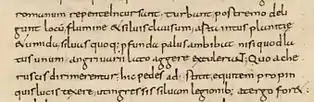 romanum repente incursant. turbant. postremo deli
gunt locū flumine & siluis clausum. arta intus planitie
& umida. siluas quoq; pfunda palus ambibat nisi quod la
tus unum angriuarii lato aggere extulerant. Quo a che
ruscis dirimerentur. hic pedes ad stitit. equitem propin
quis lucis texere. ut ingressis siluam legionib; a tergo for&.